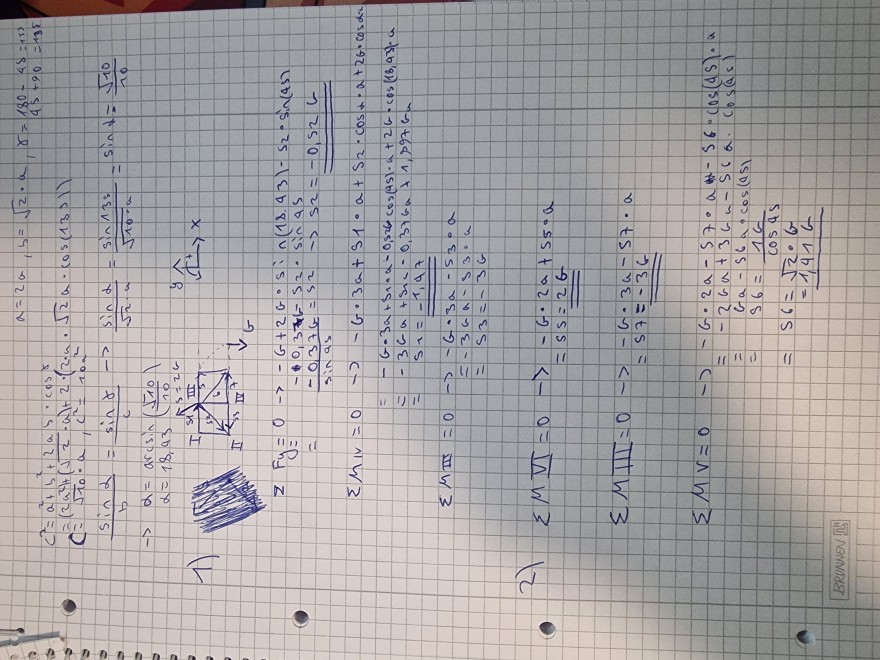 a = 2a, b = √2 · a, γ = 180 - 45 = 135
45 + 90 = 135
c² = a² + b² + 2ab · cos γ
c² = (2a)² + (√2 · a)² + 2 · (2 · a · √2 a · cos(135))
c = √10 · a, c² = 10a²
sin α / b = sin γ / c → sin α / √2 a = sin 135 / √10 · a = sin α = √10 / 10
→ α = arcsin (√10 / 10)
α = 18,43
S = 2G
y
x
1)
I
S1
III
S2
II
S3
IV
5
6
7
G
Σ Fy = 0 → -G + 2G · sin(18.43) - S2 · sin(45)
= -0,37G - S2 · sin 45
= -0,37G / sin 45 = S2 → S2 = -0,52 G
Σ M IV = 0 → -G · 3a + S1 · a + S2 · cos α · a + 2G · cos α · a
= -G · 3a + S1 · a - 0,52G cos(45) · a + 2G · cos(18,43) · a
= -3Ga + S1a - 0,37Ga + 1,897Ga
= S1 = -1,47
Σ M III = 0 → -G · 3a - S3 · a
= -3Ga - S3 · a
= S3 = -3G
2) Σ M VI = 0 → -G · 2a + S5 · a
= S5 = 2G
Σ M III = 0 → -G · 3a - S7 · a
= S7 = -3G
Σ M V = 0 → -G · 2a - S7 · a - S6 · cos(45) · a
= -2Ga + 3Ga - S6a · cos(45)
= Ga - S6a · cos(45)
= S6 = 1G / cos 45
= S6 = √2 · G
= 1,41G
BRUNNEN